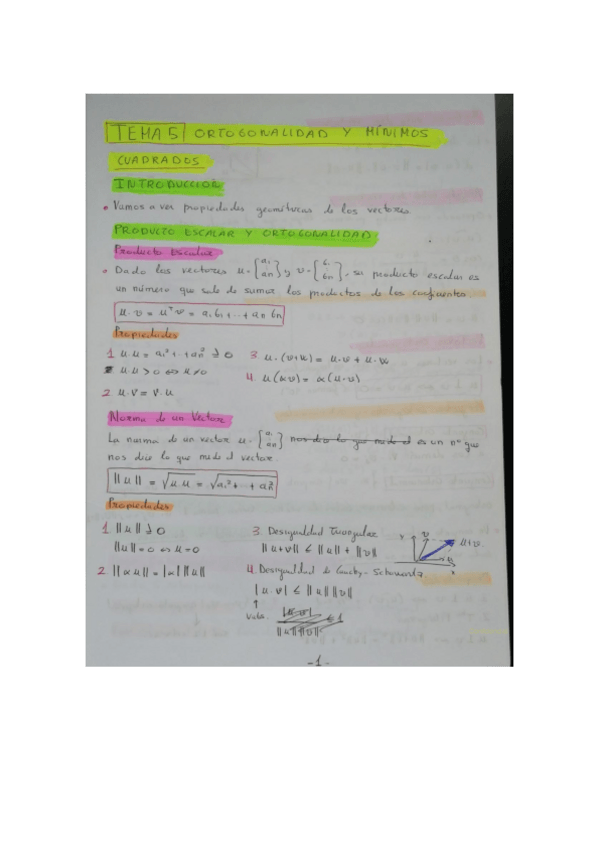 TEMA 5 ORTOGONALIDAD Y MÍNIMOS
CUADRADOS
INTRODUCCION
• Vamos a ver propiedades geométricas de los vectores
PRODUCTO ESCALAR Y ORTOGONALIDAD
Producto Escalar
• Dado los vectores u = [a₁ an] y v = [b₁ bn], su producto escalar es
un número que sale de sumar los productos de los coeficientes
u·v = uᵀv = a₁b₁ + ... + an bn
Propiedades
1 u.u = a₁² + ... + an² ≥ 0
u.u > 0 ⇔ u ≠ 0
2 u.v = v.u
3 u.(v+w) = u.v + u.w
4. u(αv) = α(u.v)
Norma de un Vector
La norma de un vector u = [a₁ an] nos dice lo que mide el es un nº que
nos dice lo que mide el vector.
||u|| = √u.u = √a₁² + ... + an²
Propiedades
1 ||u|| ≥ 0
||u|| = 0 ⇔ u = 0
2 ||αu|| = |α| ||u||
3. Desigualdad Triangular
||u+v|| ≤ ||u|| + ||v||
Y v u+v
u
X
4. Desigualdad de Cauchy-Schwarz
|u.v| ≤ ||u|| ||v||
↑
Valor
|u.v| ≤ 1
||u|| ||v||
-1-